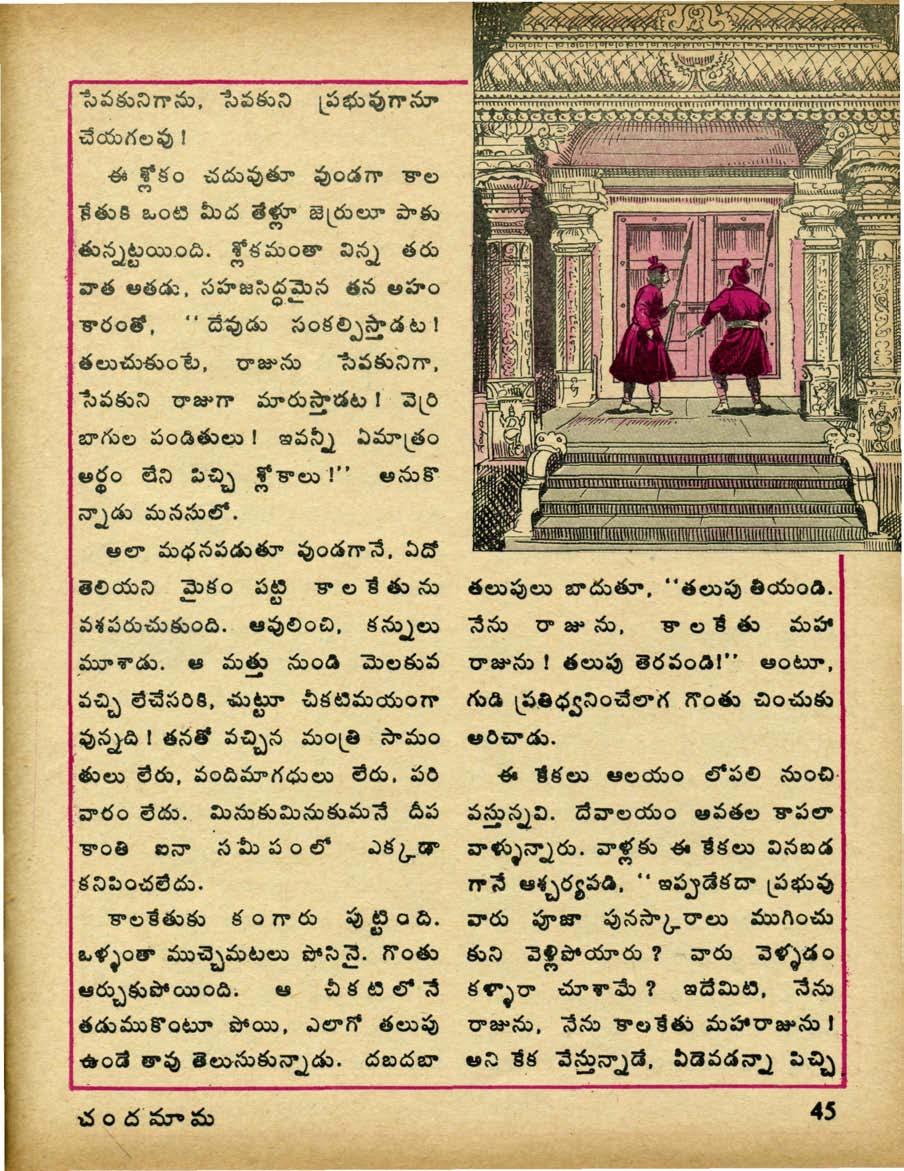 సేవకునిగాను, సేవకుని ప్రభువుగానూ
చేయగలవు !
ఈ శ్లోకం చదువుతూ వుండగా కాల
కేతుకి ఒంటి మీద తేళ్లూ జెర్రులూ పాకు
తున్నట్టయింది. శ్లోకమంతా విన్న తరు
వాత అతడు, సహజసిద్ధమైన తన అహం
కారంతో, ‘‘ దేవుడు సంకల్పిస్తాడట !
తలుచుకుంటే, రాజును సేవకునిగా,
సేవకుని రాజుగా మారుస్తాడట ! వెర్రి
బాగుల పండితులు ! ఇవన్నీ ఏమాత్రం
అర్థం లేని పిచ్చి శ్లోకాలు !’’ అనుకొ
న్నాడు మనసులో.
అలా మధనపడుతూ వుండగానే, ఏదో
తెలియని మైకం పట్టి కాలకేతును
వశపరుచుకుంది. ఆవులించి, కన్నులు
మూశాడు. ఆ మత్తు నుండి మెలకువ
వచ్చి లేచేసరికి, చుట్టూ చీకటిమయంగా
వున్నది ! తనతో వచ్చిన మంత్రి సామం
తులు లేరు, వందిమాగధులు లేరు, పరి
వారం లేదు. మినుకుమినుకుమనే దీప
కాంతి ఐనా సమీపంలో ఎక్కడా
కనిపించలేదు.
కాలకేతుకు కంగారు పుట్టింది.
ఒళ్ళంతా ముచ్చెమటలు పోసినై. గొంతు
ఆర్చుకుపోయింది. ఆ చీకటిలోనే
తడుముకొంటూ పోయి, ఎలాగో తలుపు
ఉండే తావు తెలుసుకున్నాడు. దబదబా
తలుపులు బాదుతూ, ‘‘తలుపు తియండి.
నేను రాజును, కాలకేతు మహా
రాజును ! తలుపు తెరవండి!’’ అంటూ,
గుడి ప్రతిధ్వనించేలాగ గొంతు చించుకు
అరిచాడు.
ఈ కేకలు ఆలయం లోపలి నుంచి
వస్తున్నవి. దేవాలయం అవతల కాపలా
వాళ్ళున్నారు. వాళ్లకు ఈ కేకలు వినబడ
గానే ఆశ్చర్యపడి, ‘‘ ఇప్పుడేకదా ప్రభువు
వారు పూజా పునస్కారాలు ముగించు
కుని వెళ్లిపోయారు ? వారు వెళ్ళడం
కళ్ళారా చూశామే ? ఇదేమిటి, నేను
రాజును, నేను కాలకేతు మహారాజును !
అని కేక వేస్తున్నాడే, వీడెవడన్నా పిచ్చి
చందమామ
45